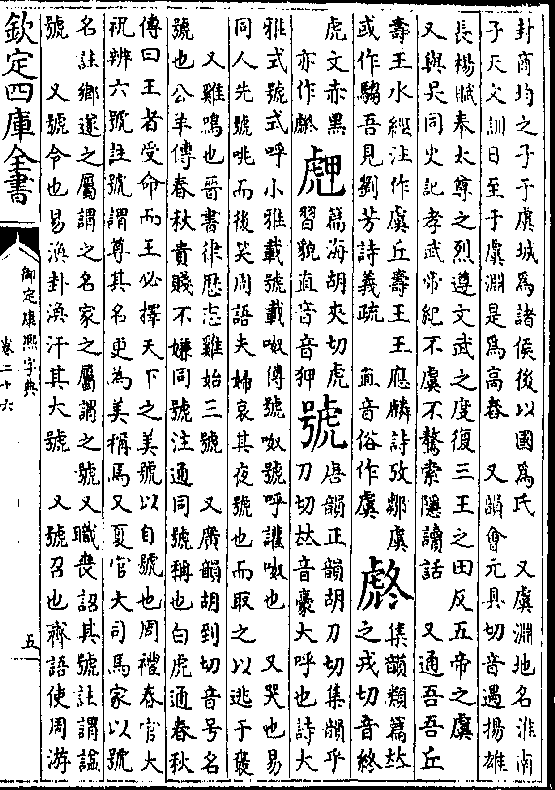 封商均之子于虞城為諸侯後以國為氏　又虞淵地名淮南
子天文訓日至于虞淵是為高舂　又韻會元具切音遇揚雄
長楊賦奉太尊之烈遵文武之度復三王之田反五帝之虞
又與吳同史記孝武帝紀不虞不驁索隱讀話　又通吾吾丘
壽王水經注作虞丘壽王王應麟詩攷鄒虞
或作騶吾見劉芳詩義疏　直音俗作虞
集韻類篇𠀤
之戎切音終
虎文赤黑
亦作
篇海胡夾切虎
習貌直音音狎
號
唐韻正韻胡刀切集韻乎
刀切𠀤音豪大呼也詩大
雅式號式呼小雅載號載呶傳號呶號呼讙呶也　又哭也易
同人先號咷而後笑周語夫婦哀其夜號也而取之以逃于襃
又雞鳴也晉書律歷志雞始三號　又廣韻胡到切音号名
號也公羊傳春秋貴賤不嫌同號注通同號稱也白虎通春秋
傳曰王者受命而王必擇天下之美號以自號也周禮春官大
祝辨六號註號謂尊其名更為美稱焉又夏官大司馬家以號
名註鄉遂之屬謂之名家之屬謂之號又職喪詔其號註謂謚
號　又號令也易渙卦渙汗其大號　又號召也齊語使周游
欽定四庫全書
御定康熙字典
卷二十六
五